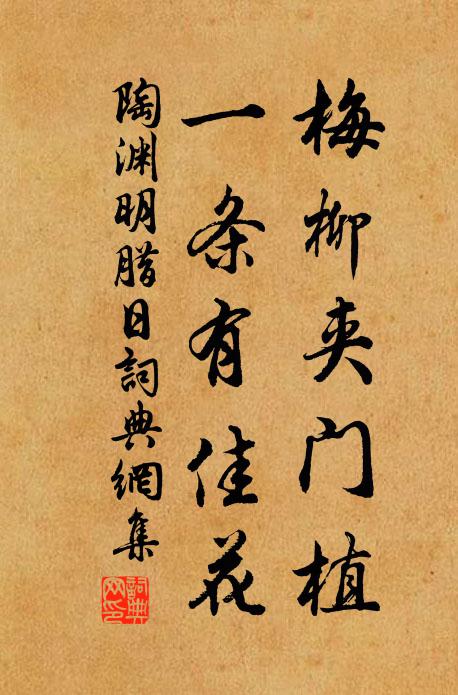 梅柳夹门植
一条有佳花
陶渊明腊日詞典網集
詞典网印